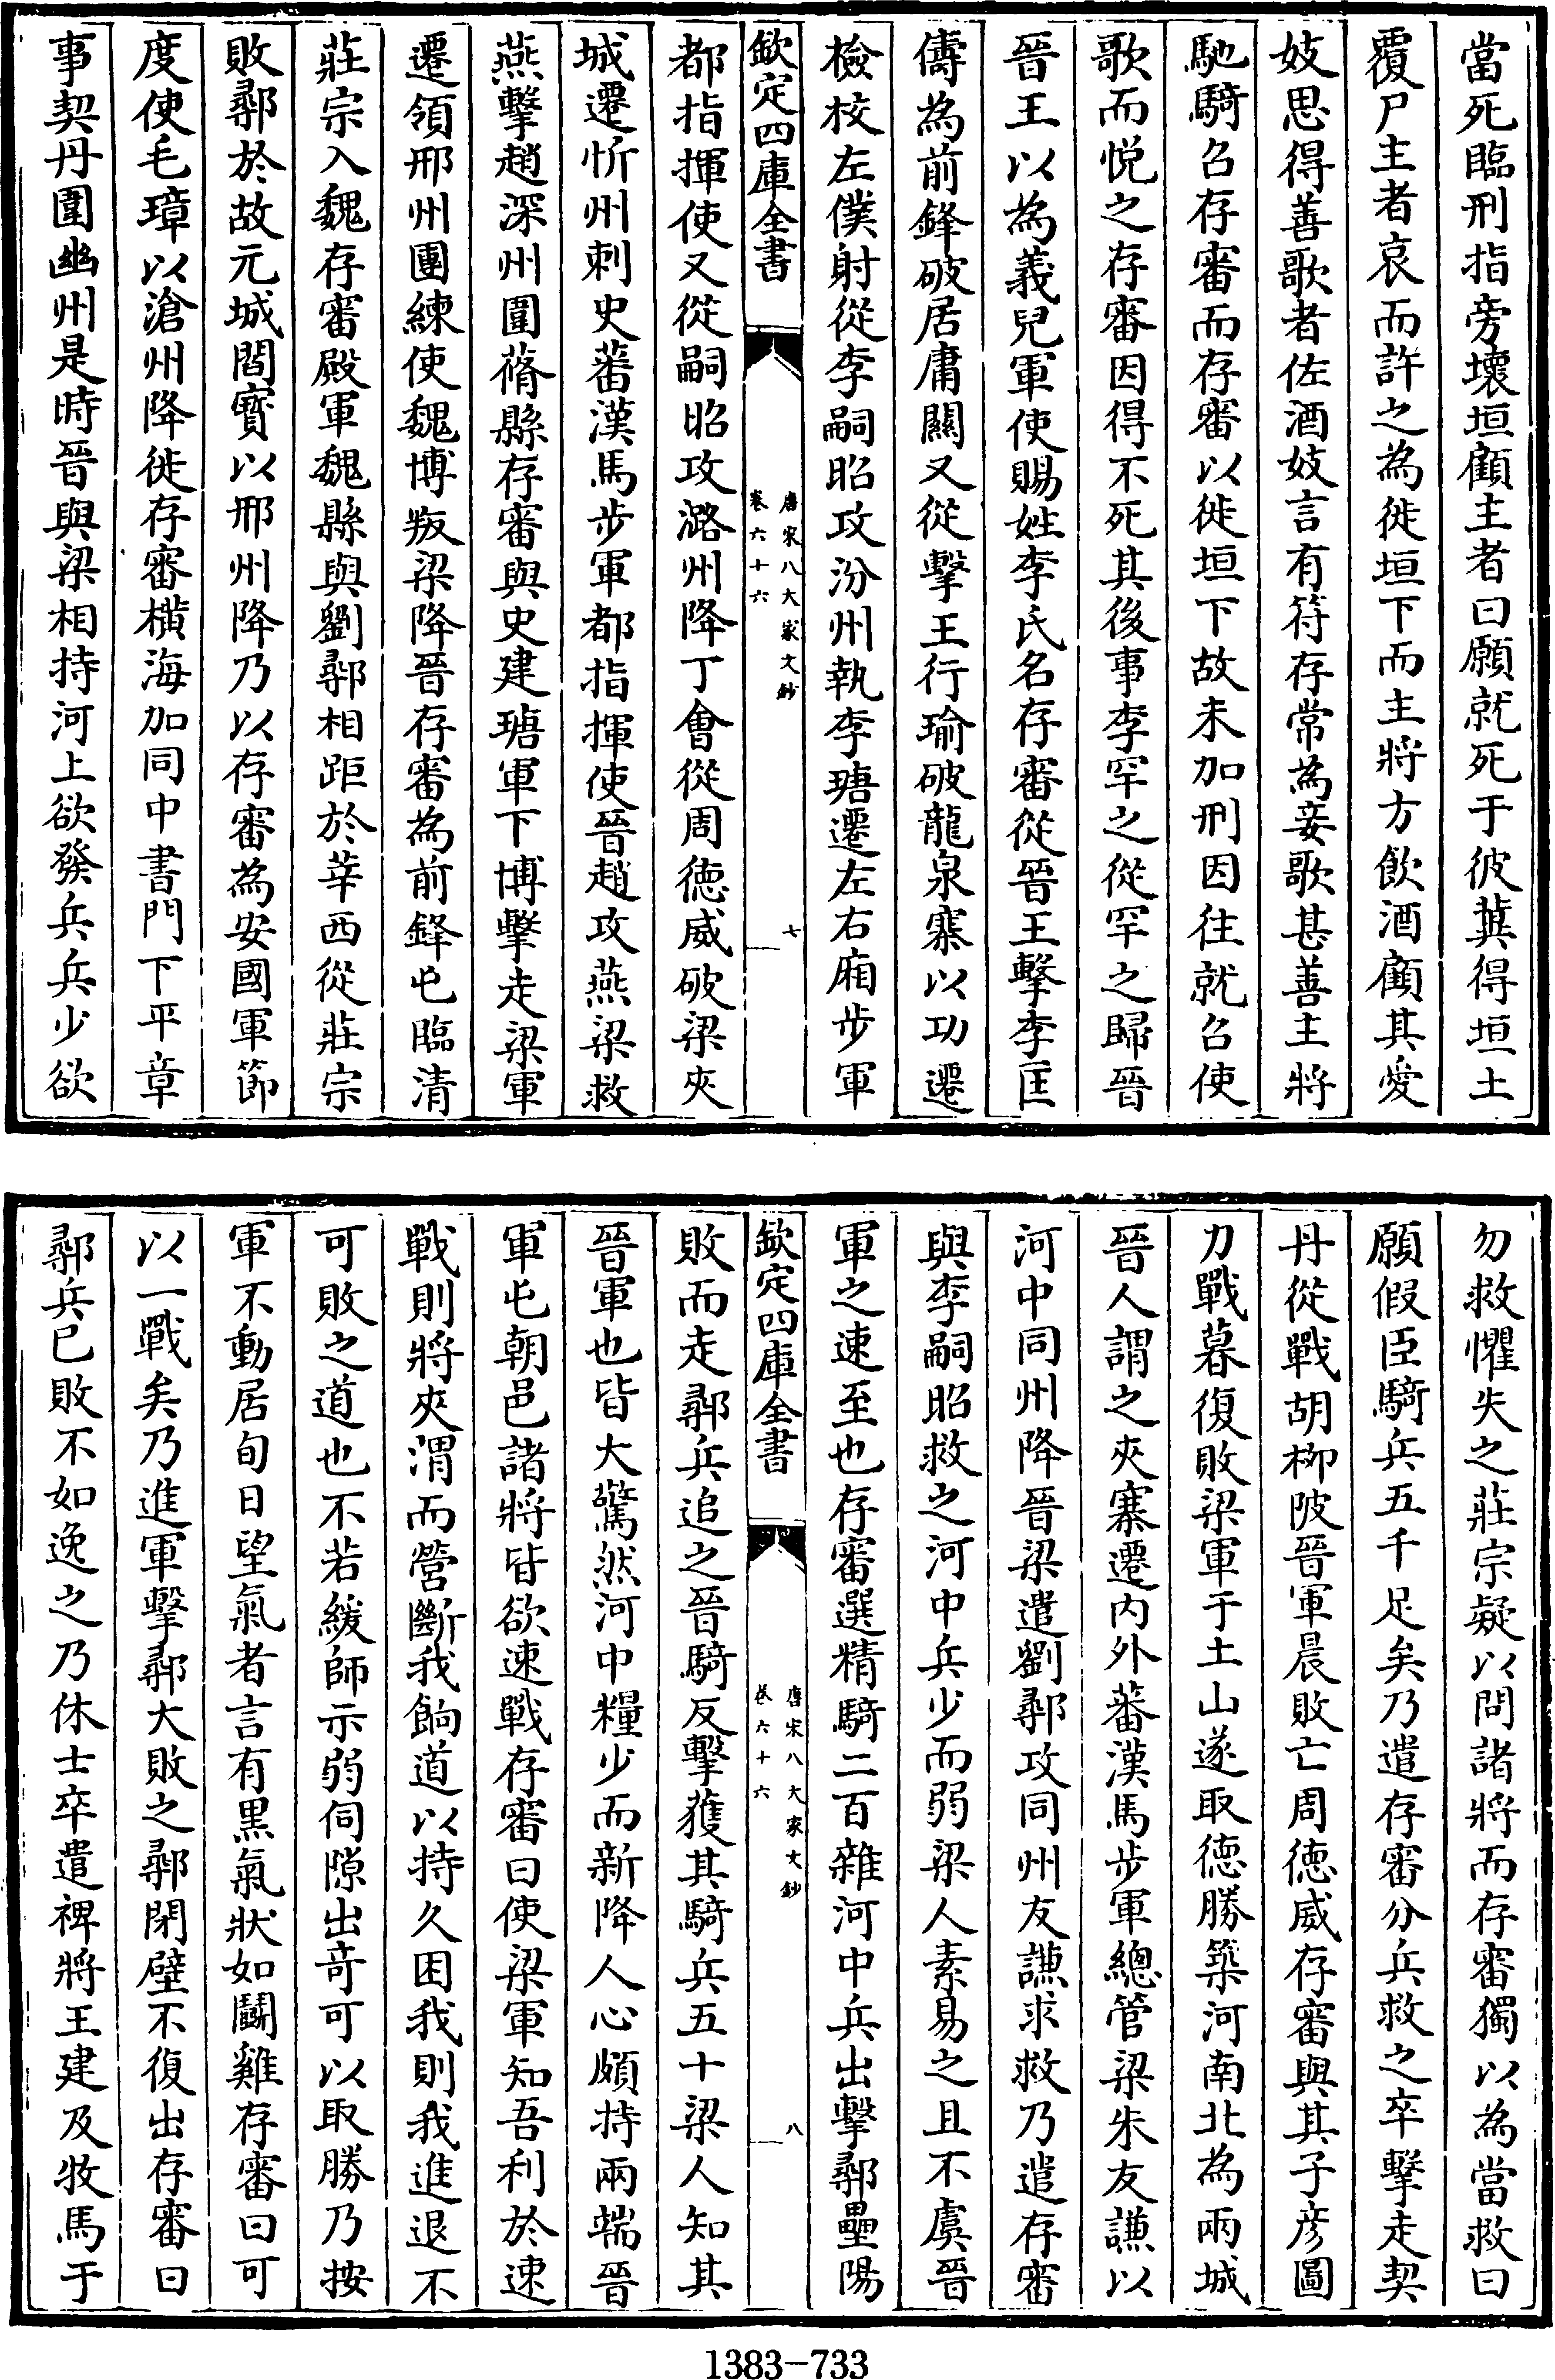 當死臨刑指旁壞垣顧主者曰願就死于彼冀得垣土
覆尸主者哀而許之為徙垣下而主將方飲酒顧其愛
妓思得善歌者佐酒妓言有符存常為妾歌甚善主將
馳騎召存審而存審以徙垣下故未加刑因往就召使
歌而悅之存審因得不死其後事李罕之從罕之歸晉
晉王以為義兒軍使賜姓李氏名存審從晉王擊李匡
儔為前鋒破居庸關又從擊王行瑜破龍泉寨以功遷
檢校左僕射從李嗣昭攻汾州執李瑭遷左右廂步軍
欽定四庫全書
唐宋八大家文鈔
卷六十六
七
都指揮使又從嗣昭攻潞州降丁會從周徳威破梁夾
城遷忻州刺史蕃漢馬步軍都指揮使晉趙攻燕梁救
燕擊趙深州圍蓨縣存審與史建瑭軍下博擊走梁軍
遷領邢州團練使魏博叛梁降晉存審為前鋒屯臨清
莊宗入魏存審殿軍魏縣與劉鄩相距於莘西從莊宗
敗鄩於故元城閻寳以邢州降乃以存審為安國軍節
度使毛璋以滄州降徙存審橫海加同中書門下平章
事契丹圍幽州是時晉與梁相持河上欲發兵兵少欲
勿救懼失之莊宗疑以問諸將而存審獨以為當救曰
願假臣騎兵五千足矣乃遣存審分兵救之卒擊走契
丹從戰胡柳陂晉軍晨敗亡周徳威存審與其子彦圖
力戰暮復敗梁軍于土山遂取徳勝築河南北為兩城
晉人謂之夾寨遷內外蕃漢馬步軍總管梁朱友謙以
河中同州降晉梁遣劉鄩攻同州友謙求救乃遣存審
與李嗣昭救之河中兵少而弱梁人素易之且不虞晉
軍之速至也存審選精騎二百雜河中兵出擊鄩壘陽
欽定四庫全書
唐宋八大家文鈔
卷六十六
八
敗而走鄩兵追之晉騎反擊獲其騎兵五十梁人知其
晉軍也皆大驚然河中糧少而新降人心頗持兩端晉
軍屯朝邑諸將皆欲速戰存審曰使梁軍知吾利於速
戰則將夾渭而營斷我餉道以持久困我則我進退不
可敗之道也不若緩師示弱伺隙出奇可以取勝乃按
軍不動居旬日望氣者言有黒氣狀如鬬雞存審曰可
以一戰矣乃進軍擊鄩大敗之鄩閉壁不復出存審曰
鄩兵已敗不如逸之乃休士卒遣裨將王建及牧馬于
1383-733